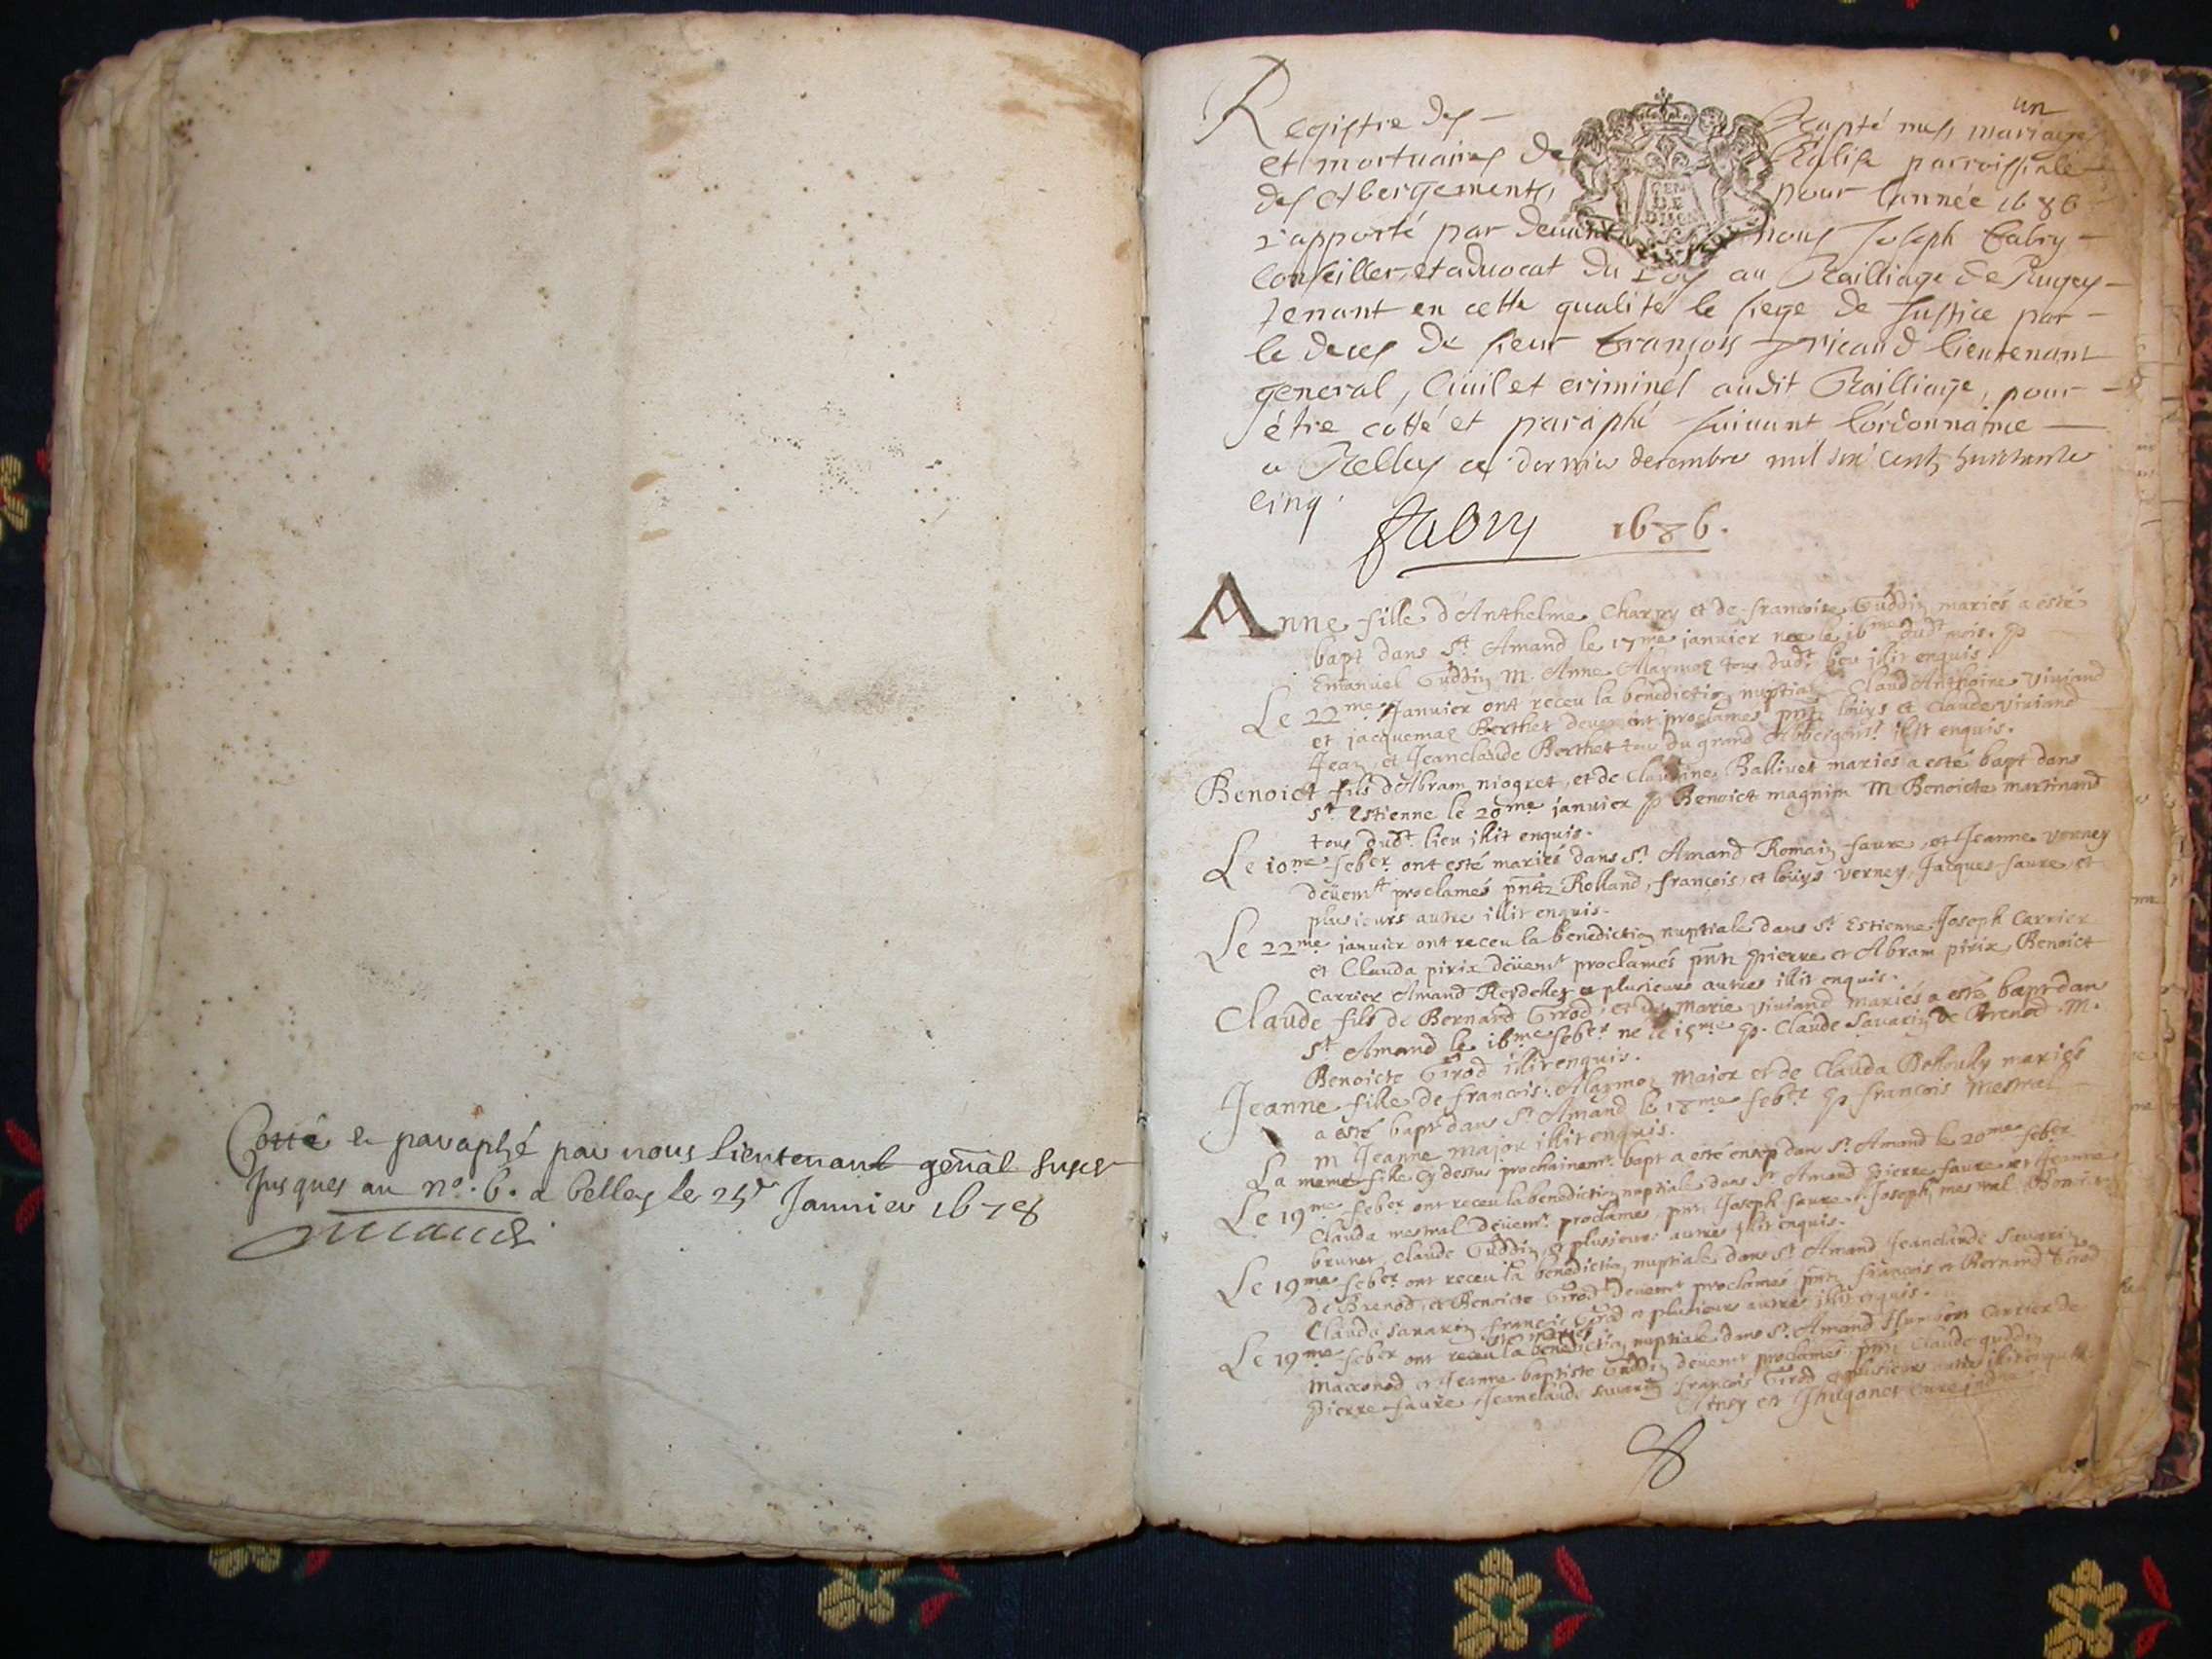 Cotté et paraphé par nous Lieutenant genâl
Jusques au n.º 6. a belley le 25e Janvier 1678
un
Registre des Bapté mes mariages
et mortuaires de Eglise parroissiale
des Abergements, pour l'année 1686
GEN DE DIJON
rapporté par devant nous Joseph Fabry
Conseiller et advocat du Roy au Bailliage de Bugey
tenant en cette qualité le siege de Justice par
le deces de sieur François lieutenant
general, Civil et criminel audit Bailliage, pour
être cotté et paraphé suivant l'ordonnance
a Belley ce dernier decembre mil six cents huictante
cinq.
Fabry 1686.
Anne fille d'Anthelme Charvy et de francoise Guddin mariés a esté
bapt dans St Amand le 17me janvier nee le 16me dudt mois. P
Emanuel Guddin M. Anne tous dudt lieu illit enquis.
Le 22me Janvier ont receu la benediction nuptiale Claud Anthoine Viviand
et jacquemaz Berthet proclames pnts louys et Claude viviand
Jean, et Jeanclaude Berthet tous du grand illit enquis.
Benoict fils d'Abram niogret, et de Claudine Ballivet mariés a esté bapt dans
St Estienne le 20me janvier P Benoict magnin M Benoicte martinand
tous dudt lieu illit enquis.
Le 10me feber ont esté mariés dans St Amand Romain faure, et Jeanne verney
deüemt proclamés pnts Rolland, françois, et loüys verney, Jacques faure, et
plusieurs autre illit enquis.
Le 22me janvier ont receu la benediction nuptiale dans St Estienne Joseph Carrier
et Clauda pirix deüemt proclamés pnts pierre et Abram pirix, Benoict
Carrier Amand et plusieurs autres illit enquis.
Claude fils de Bernard Girod, et de Marie viviand mariés a esté bapt dans
St Amand le 16me febr ne le 15me P. Claude Savarin de Brenod. M.
Benoicte Girod illit enquis.
Jeanne fille de francois Major et de Clauda mariés
a esté bapt dans St Amand le 18me febr P françois mestral
M Jeanne major illit enquis.
La meme fille cy dessus prochainemt bapt a esté ensep dans St Amand le 20me feber
Le 19me feber ont receu la benediction nuptiale dans St Amand pierre faure et Jeanne
Clauda mestral deüemt proclamés, pnts Joseph faure, Joseph mestral
brunet, Claude Guddin, & plusieurs autres illit enquis.
Le 19me feber ont receu la benediction nuptiale dans St Amand Jeanclaude Savarin
de Brenod, et Benoicte Girod deuemt proclamés pnts françois et Bernard Girod
Claude Savarin françois Girod et plusieurs autres illit enquis.
esté mariés
Le 19me feber ont receu la benediction nuptiale dans St Amand Humbert Carrier de
Macconod et Jeanne baptiste Guddin deüemt proclamés, pnts Claude guddin
pierre faure, Jeanclaude savarin françois Girod et plusieurs autres illit enquis